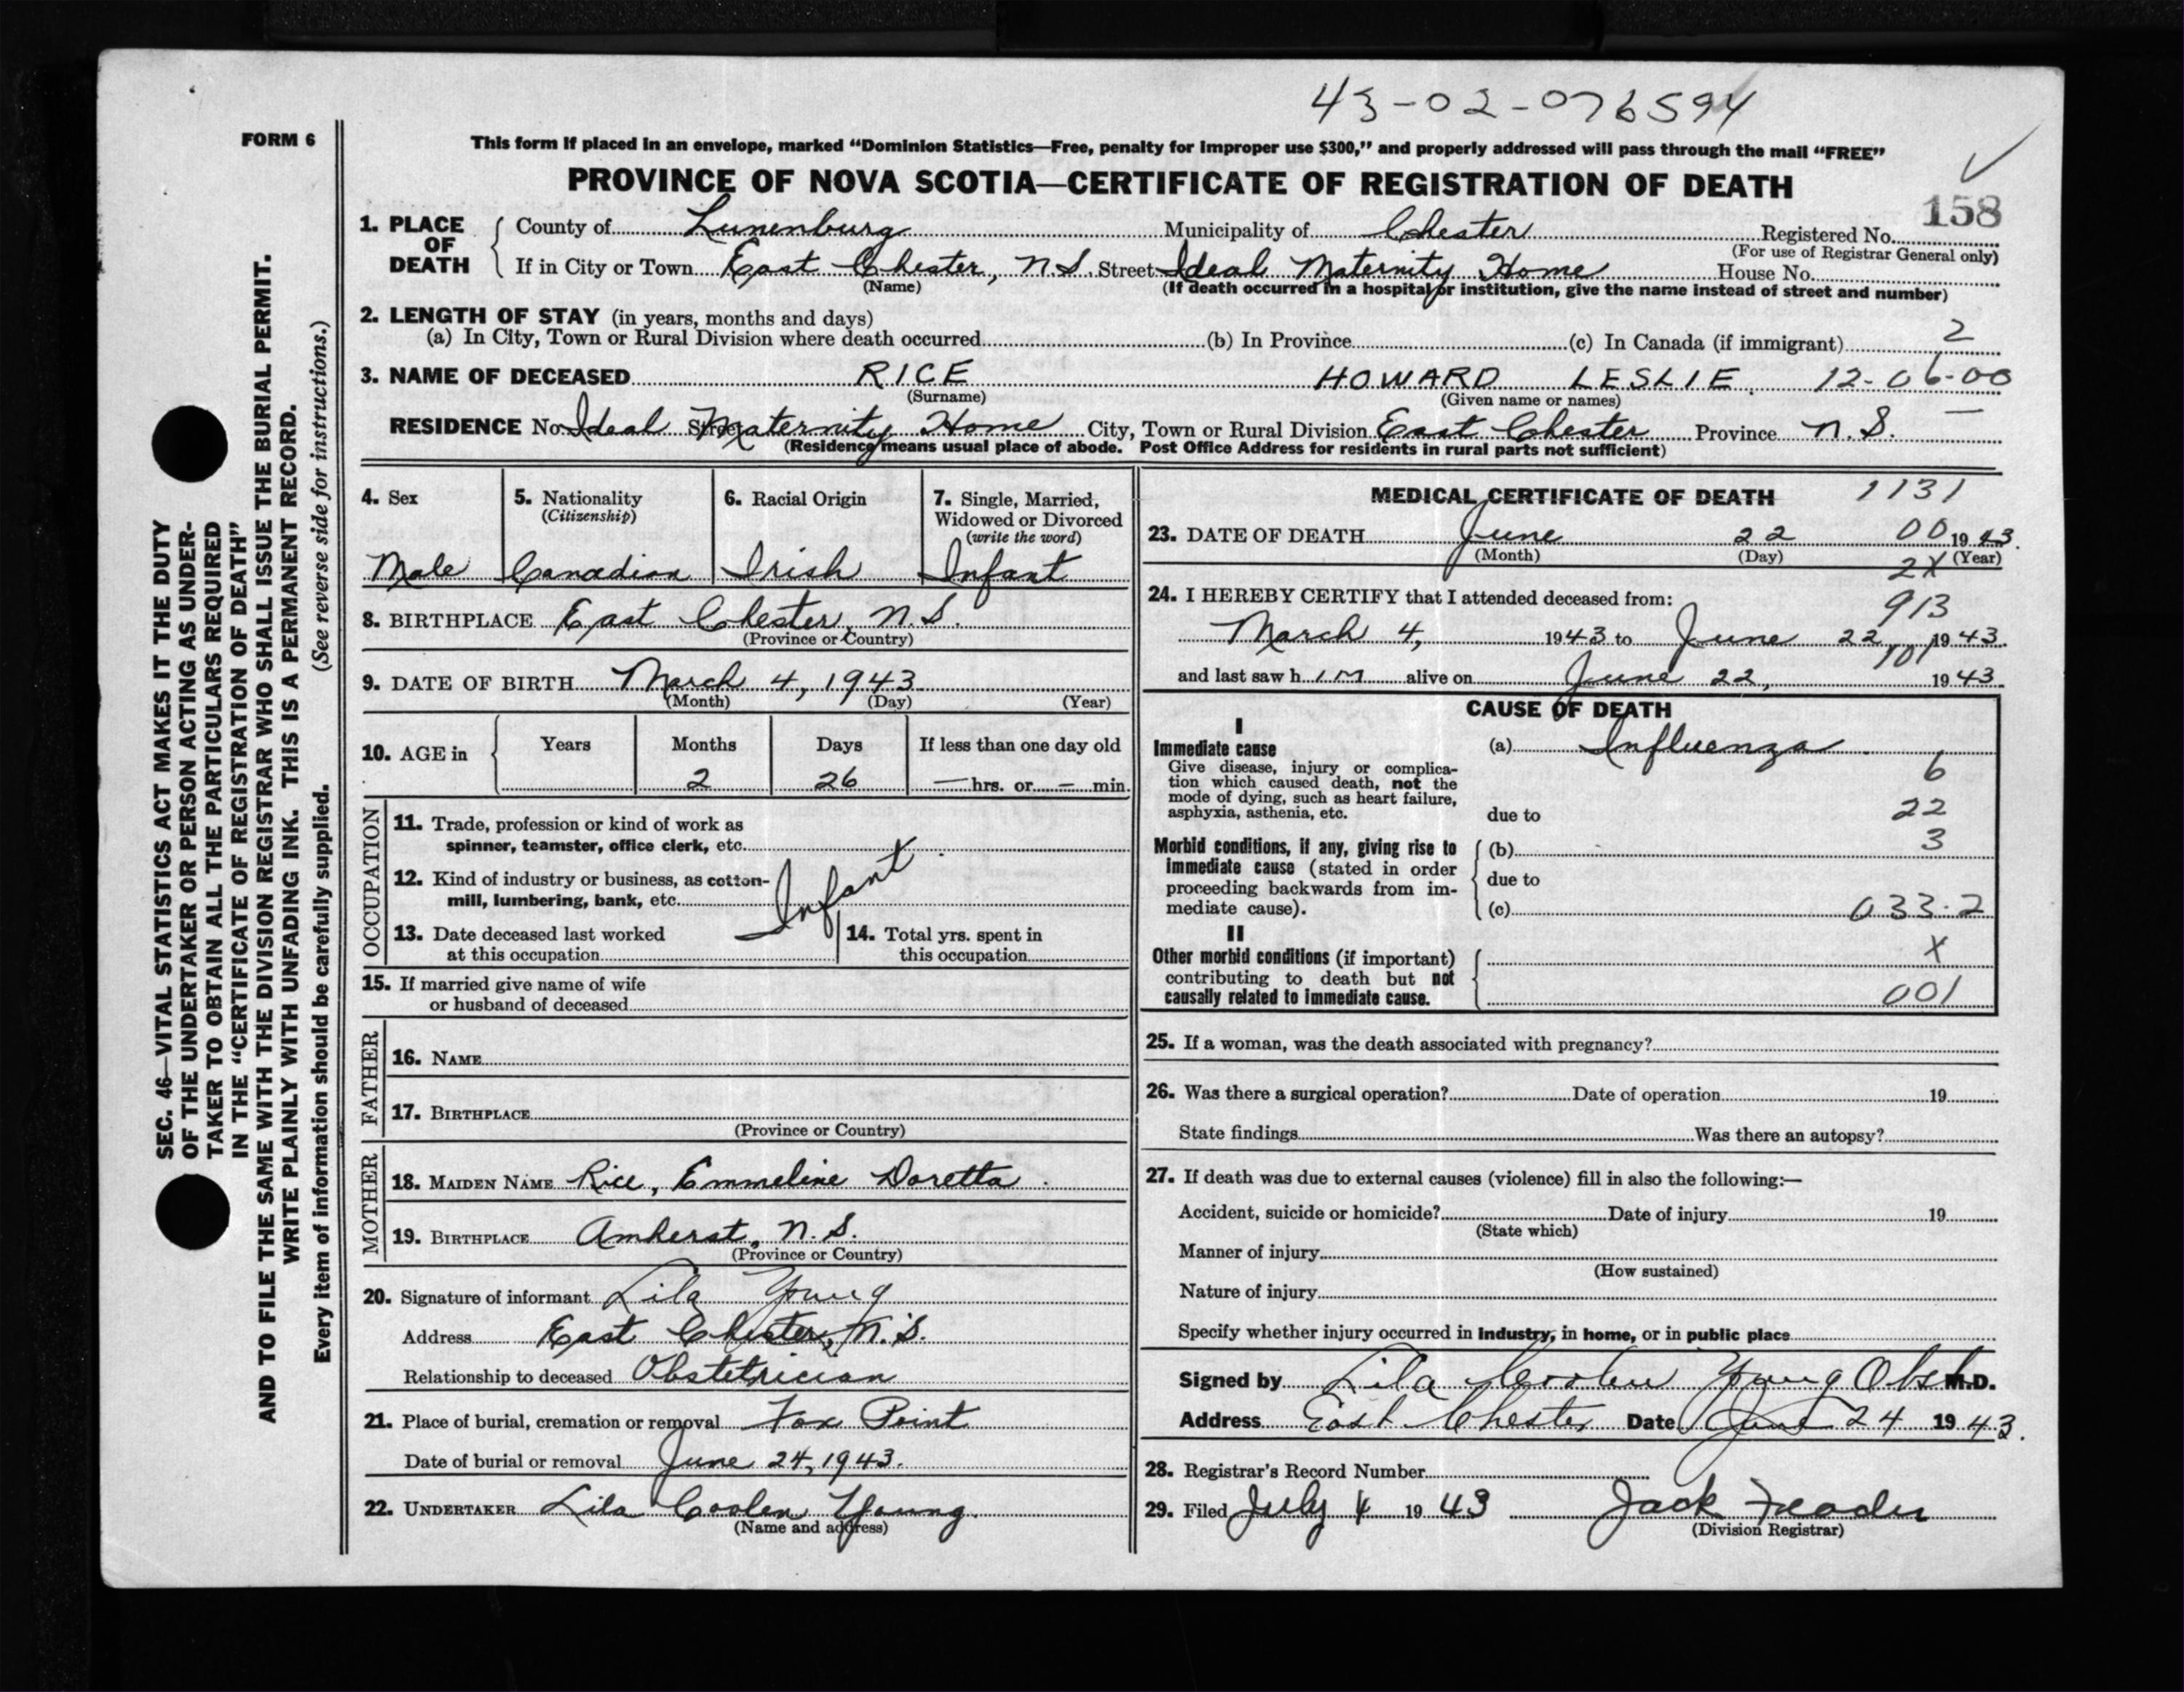 43-02-076594
FORM 6
This form if placed in an envelope, marked "Dominion Statistics—Free, penalty for improper use $300," and properly addressed will pass through the mail "FREE"
PROVINCE OF NOVA SCOTIA—CERTIFICATE OF REGISTRATION OF DEATH
158
1. PLACE OF DEATH County of Lunenburg Municipality of Chester Registered No.
(For use of Registrar General only)
If in City or Town East Chester, N.S. Street Ideal Maternity Home House No.
(Name) (If death occurred in a hospital or institution, give the name instead of street and number)
2. LENGTH OF STAY (in years, months and days)
(a) In City, Town or Rural Division where death occurred (b) In Province (c) In Canada (if immigrant) 2
3. NAME OF DECEASED RICE HOWARD LESLIE 12-06-00
(Surname) (Given name or names)
RESIDENCE No. Ideal Street Maternity Home City, Town or Rural Division East Chester Province N.S.
(Residence means usual place of abode. Post Office Address for residents in rural parts not sufficient)
4. Sex 5. Nationality 6. Racial Origin 7. Single, Married,
(Citizenship) Widowed or Divorced
(write the word)
Male Canadian Irish Infant
8. BIRTHPLACE East Chester, N.S.
(Province or Country)
9. DATE OF BIRTH March 4, 1943
(Month) (Day) (Year)
10. AGE in Years Months Days If less than one day old
2 26 — hrs. or — min.
OCCUPATION
11. Trade, profession or kind of work as
spinner, teamster, office clerk, etc.
12. Kind of industry or business, as cotton-
mill, lumbering, bank, etc. Infant
13. Date deceased last worked 14. Total yrs. spent in
at this occupation this occupation
15. If married give name of wife
or husband of deceased
FATHER
16. NAME
17. BIRTHPLACE
(Province or Country)
MOTHER
18. MAIDEN NAME Rice, Emmeline Doretta
19. BIRTHPLACE Amherst, N.S.
(Province or Country)
20. Signature of informant Lila Young
Address East Chester, N.S.
Relationship to deceased Obstetrician
21. Place of burial, cremation or removal Fox Point
Date of burial or removal June 24, 1943.
22. UNDERTAKER Lila Coolen Young.
(Name and address)
MEDICAL CERTIFICATE OF DEATH 1131
23. DATE OF DEATH June 22 00 1943.
(Month) (Day) (Year)
2X
24. I HEREBY CERTIFY that I attended deceased from:
913
March 4, 1943 to June 22, 1943.
101
and last saw him alive on June 22, 1943.
CAUSE OF DEATH
I
Immediate cause (a) Influenza
Give disease, injury or complica-
tion which caused death, not the
mode of dying, such as heart failure,
asphyxia, asthenia, etc. due to
6
22
3
Morbid conditions, if any, giving rise to (b)
immediate cause (stated in order
proceeding backwards from im- due to
mediate cause). (c) 033.2
II
Other morbid conditions (if important) X
contributing to death but not
causally related to immediate cause. 001
25. If a woman, was the death associated with pregnancy?
26. Was there a surgical operation? Date of operation 19
State findings Was there an autopsy?
27. If death was due to external causes (violence) fill in also the following:—
Accident, suicide or homicide? Date of injury 19
(State which)
Manner of injury
(How sustained)
Nature of injury
Specify whether injury occurred in industry, in home, or in public place
Signed by Lila Coolen Young Obst. M.D.
Address East Chester Date June 24 1943.
28. Registrar's Record Number
29. Filed July 4 1943 Jack
(Division Registrar)
SEC. 46—VITAL STATISTICS ACT MAKES IT THE DUTY
OF THE UNDERTAKER OR PERSON ACTING AS UNDER-
TAKER TO OBTAIN ALL THE PARTICULARS REQUIRED
IN THE "CERTIFICATE OF REGISTRATION OF DEATH"
AND TO FILE THE SAME WITH THE DIVISION REGISTRAR WHO SHALL ISSUE THE BURIAL PERMIT.
WRITE PLAINLY WITH UNFADING INK. THIS IS A PERMANENT RECORD.
Every item of information should be carefully supplied. (See reverse side for instructions.)